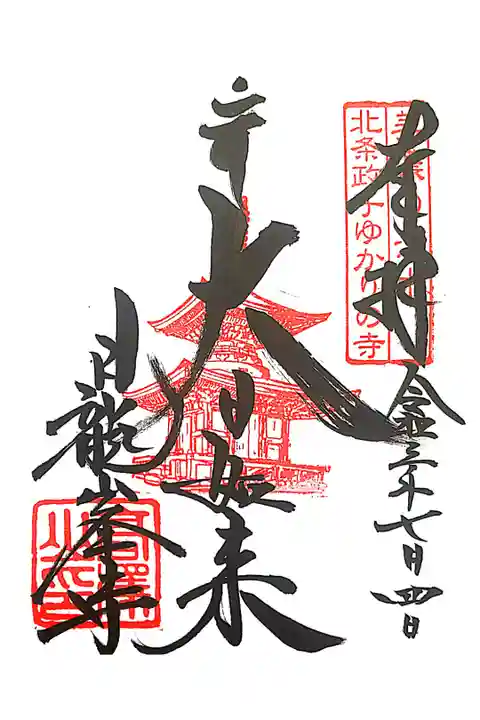 奉拝
北条政子ゆかりの寺
令三年七月四日
大日如来
日龍峯寺